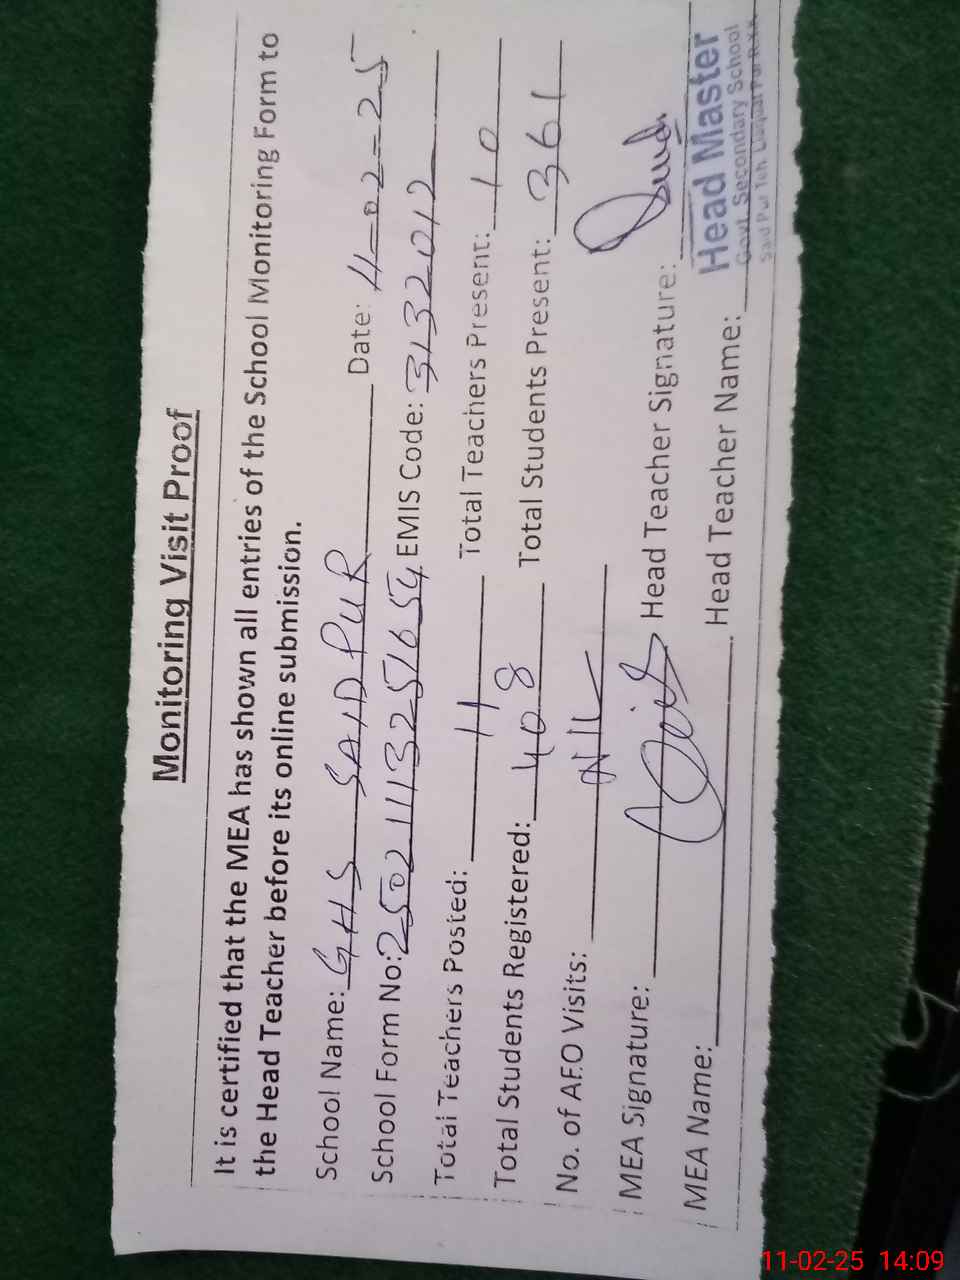 Monitoring Visit Proof
It is certified that the MEA has shown all entries of the School Monitoring Form to
the Head Teacher before its online submission.
School Name: GHS SAID PUR Date: 11-02-25
School Form No: EMIS Code: 31320012
Total Teachers Posted: 11 Total Teachers Present: 10
Total Students Registered: 408 Total Students Present: 361
No. of AEO Visits: NIL
MEA Signature: Head Teacher Signature:
MEA Name: Head Teacher Name:
Head Master
Govt. Secondary School
Said Pur Teh. Liaquat Pur R.Y.K
11-02-25 14:09